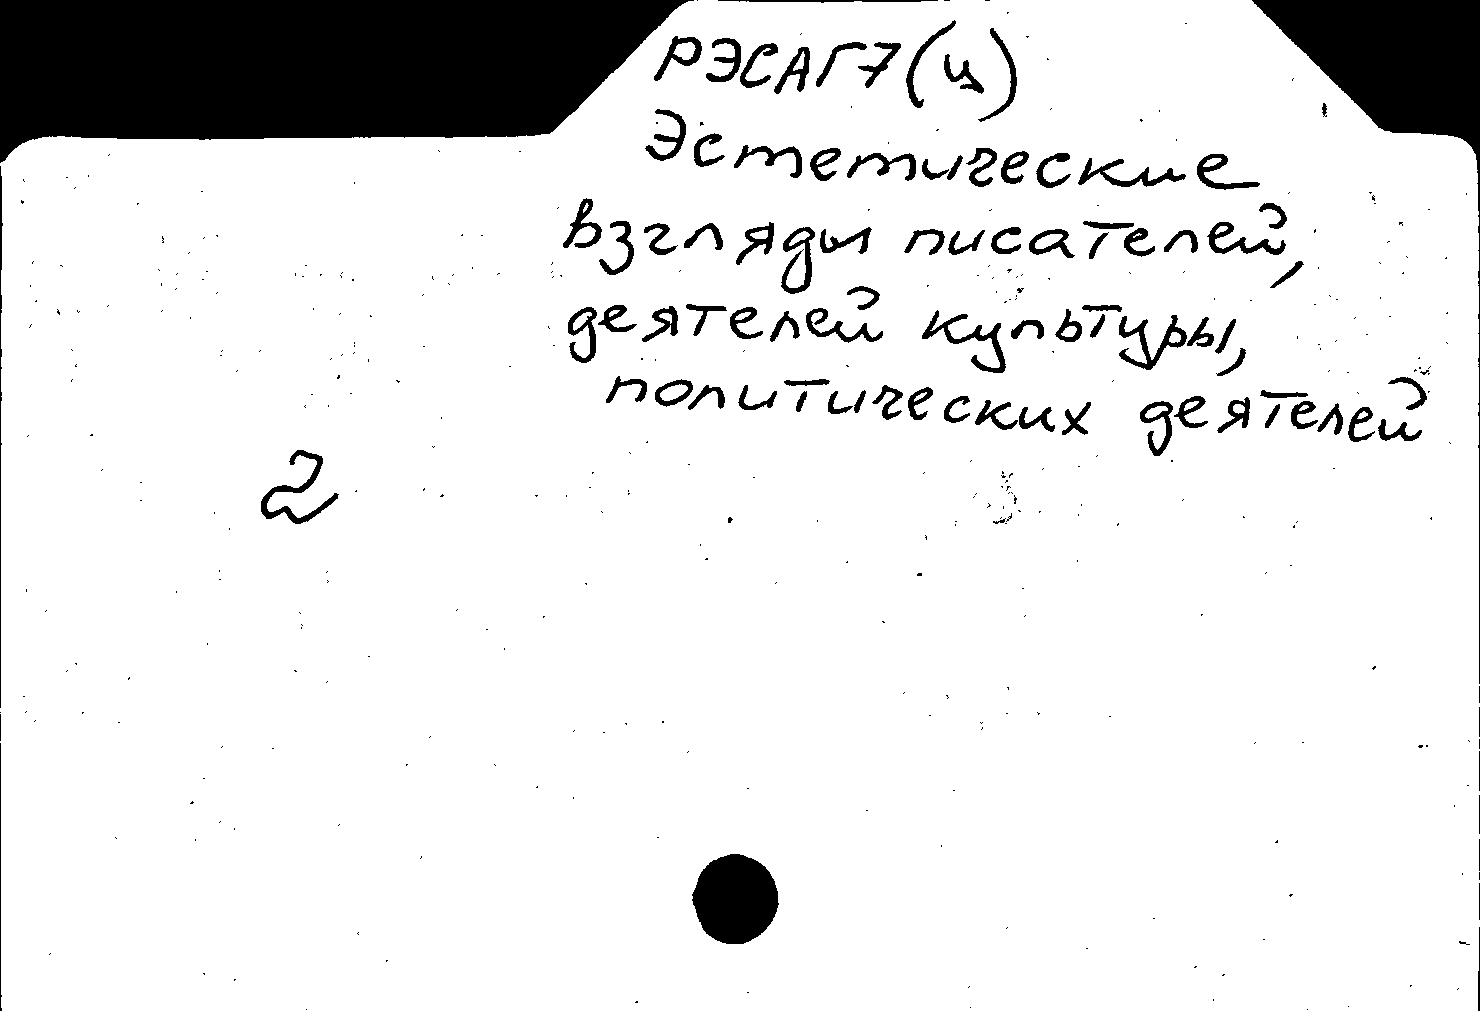 РЭСАГ7(ц)
Эстетические
взгляды писателей,
деятелей культуры,
политических деятелей
2